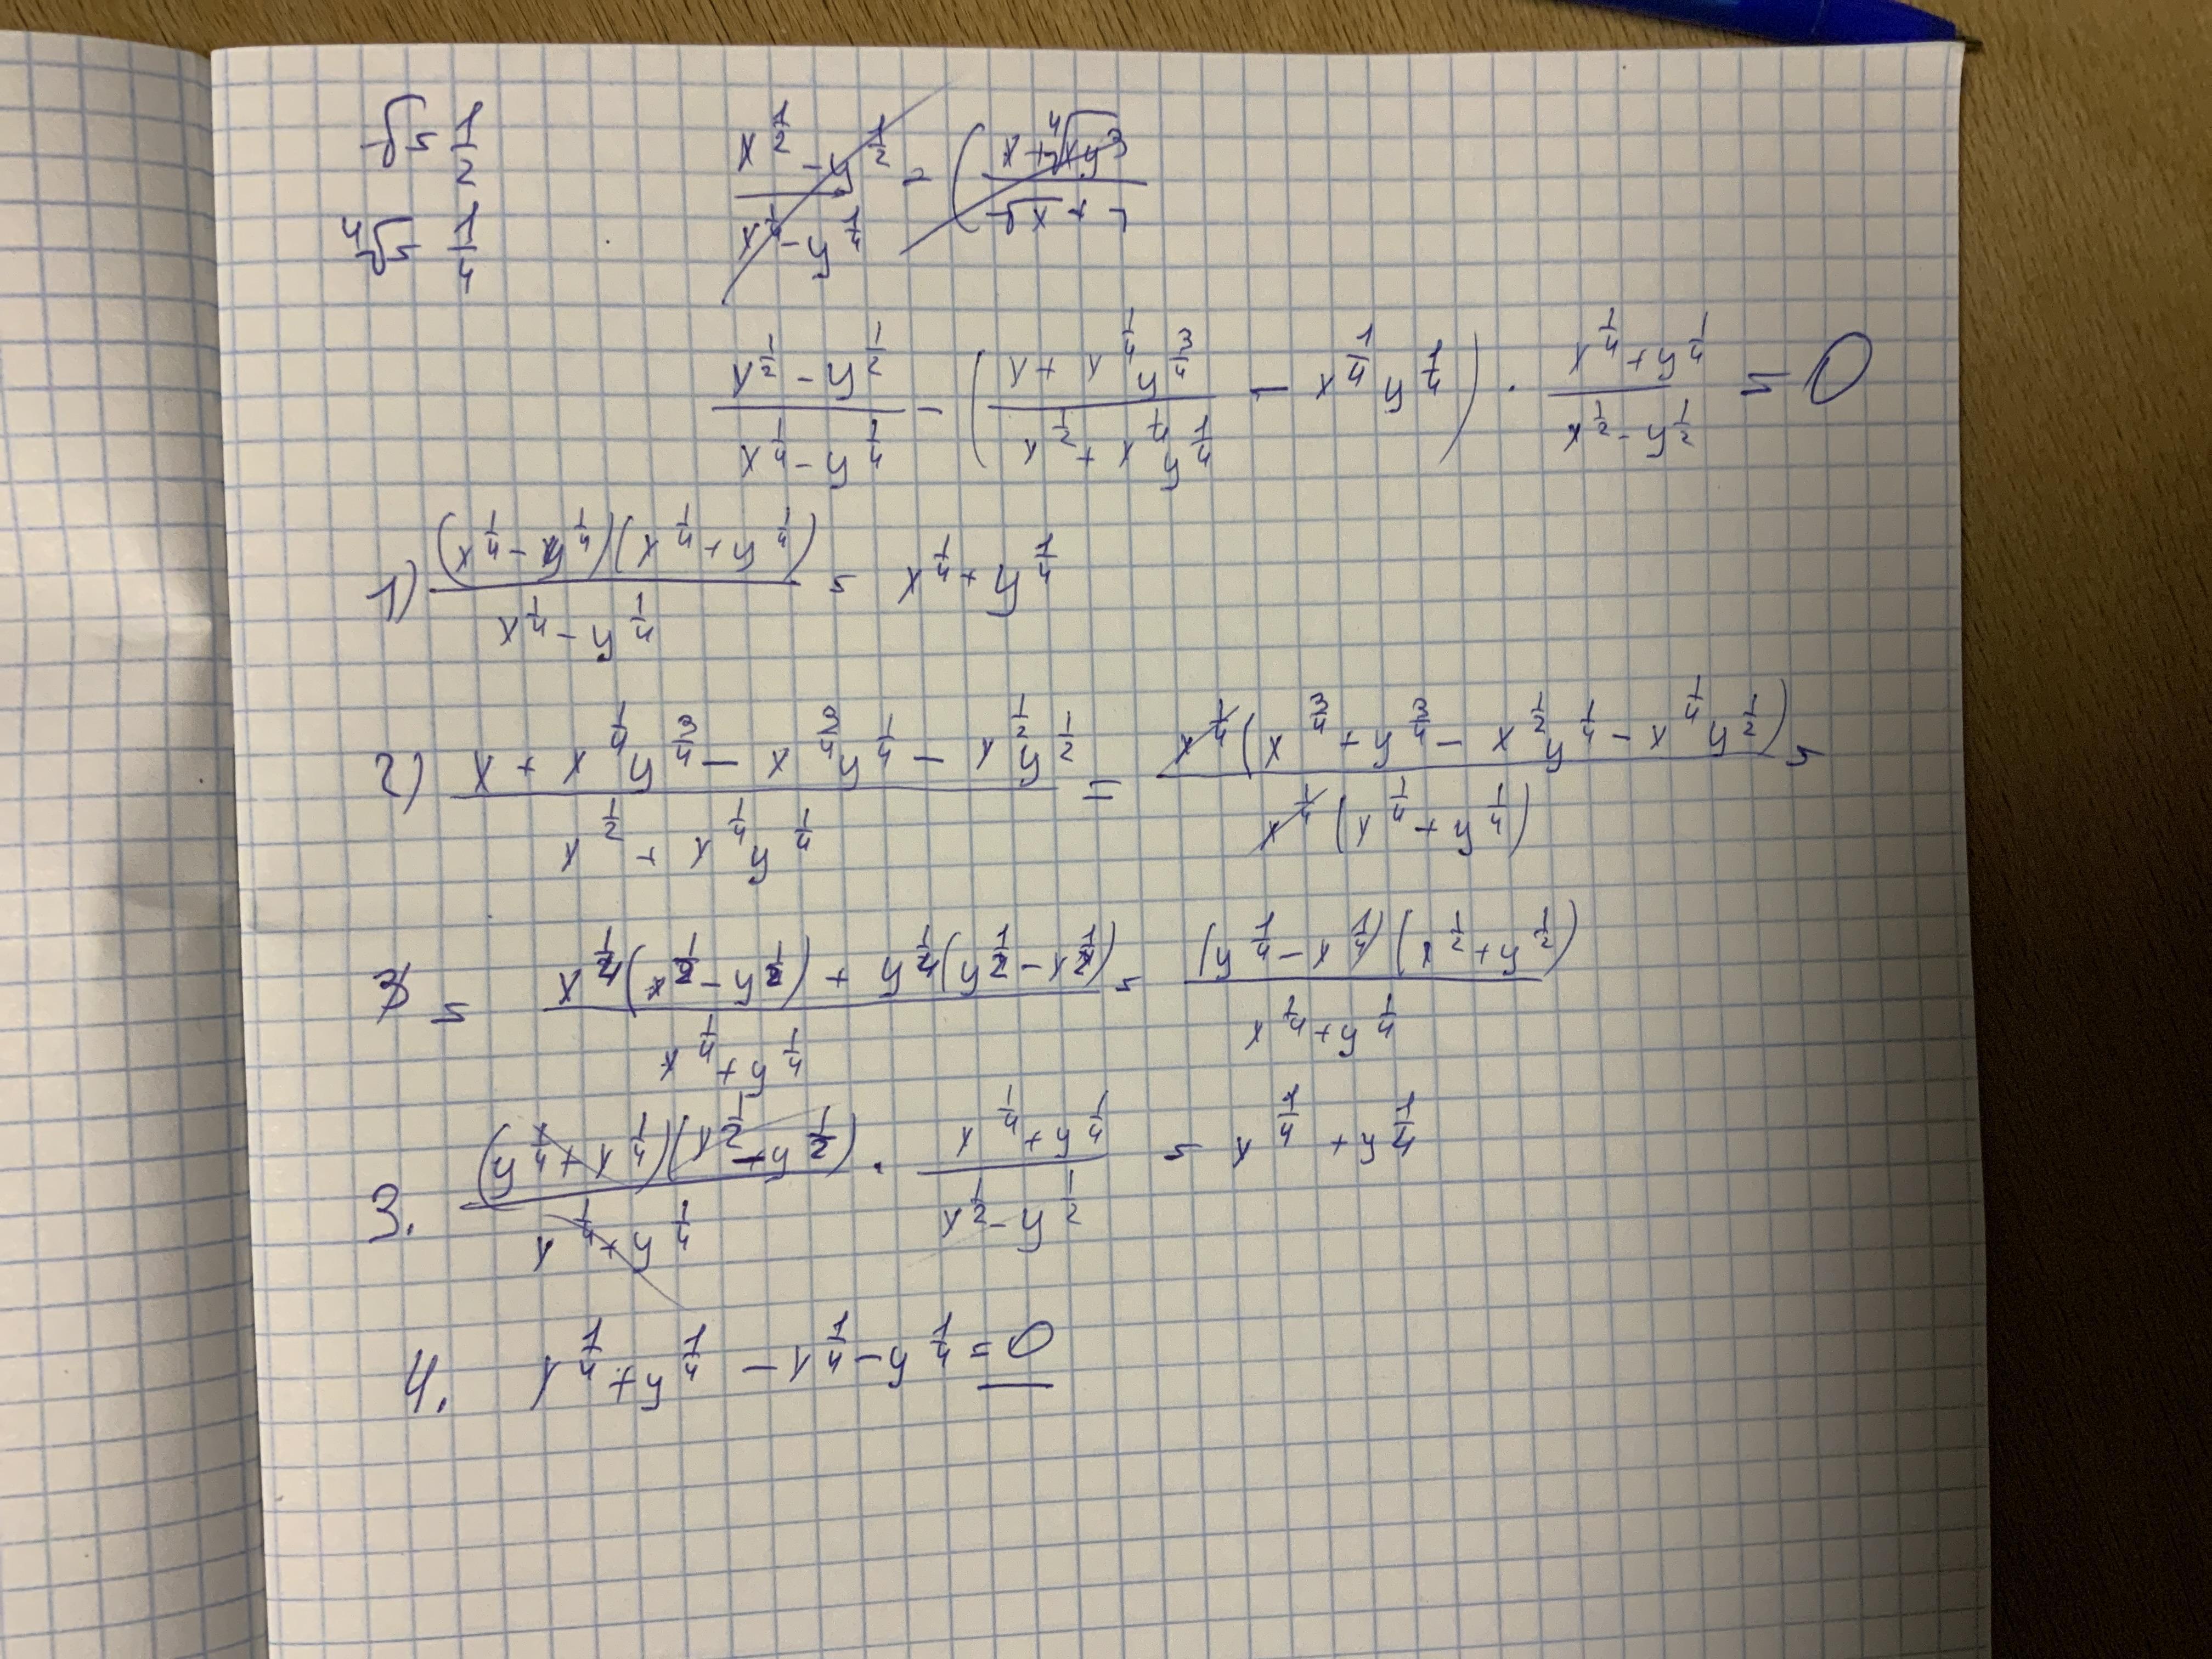 √ = 1/2
x^(1/2) - y^(1/2) / x^(1/4) - y^(1/4) - (x + ⁴√xy³ / √x +
⁴√ = 1/4
x^(1/2) - y^(1/2) / x^(1/4) - y^(1/4) - (x + x^(1/4) y^(3/4) / x^(1/2) + x^(1/4) y^(1/4) - x^(1/4) y^(1/4)) · x^(1/4) + y^(1/4) / x^(1/2) - y^(1/2) = 0
1) (x^(1/4) - y^(1/4))(x^(1/4) + y^(1/4)) / x^(1/4) - y^(1/4) = x^(1/4) + y^(1/4)
2) x + x^(1/4) y^(3/4) - x^(3/4) y^(1/4) - x^(1/2) y^(1/2) / x^(1/2) + x^(1/4) y^(1/4) = x^(1/4) (x^(3/4) + y^(3/4) - x^(1/2) y^(1/4) - x^(1/4) y^(1/2)) / x^(1/4) (x^(1/4) + y^(1/4)) =
= x^(1/4) (x^(1/2) - y^(1/2)) + y^(1/4) (y^(1/2) - x^(1/2)) / x^(1/4) + y^(1/4) = (y^(1/4) - x^(1/4)) (x^(1/2) + y^(1/2)) / x^(1/4) + y^(1/4)
3. (y^(1/4) + x^(1/4))(x^(1/2) - y^(1/2)) / x^(1/4) + y^(1/4) · x^(1/4) + y^(1/4) / x^(1/2) - y^(1/2) = x^(1/4) + y^(1/4)
4. x^(1/4) + y^(1/4) - x^(1/4) - y^(1/4) = 0